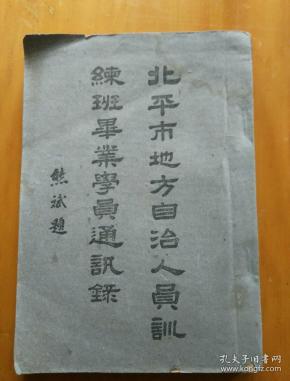 北平市地方自治人員訓
練班畢業學員通訊錄
熊斌題
孔夫子旧书网